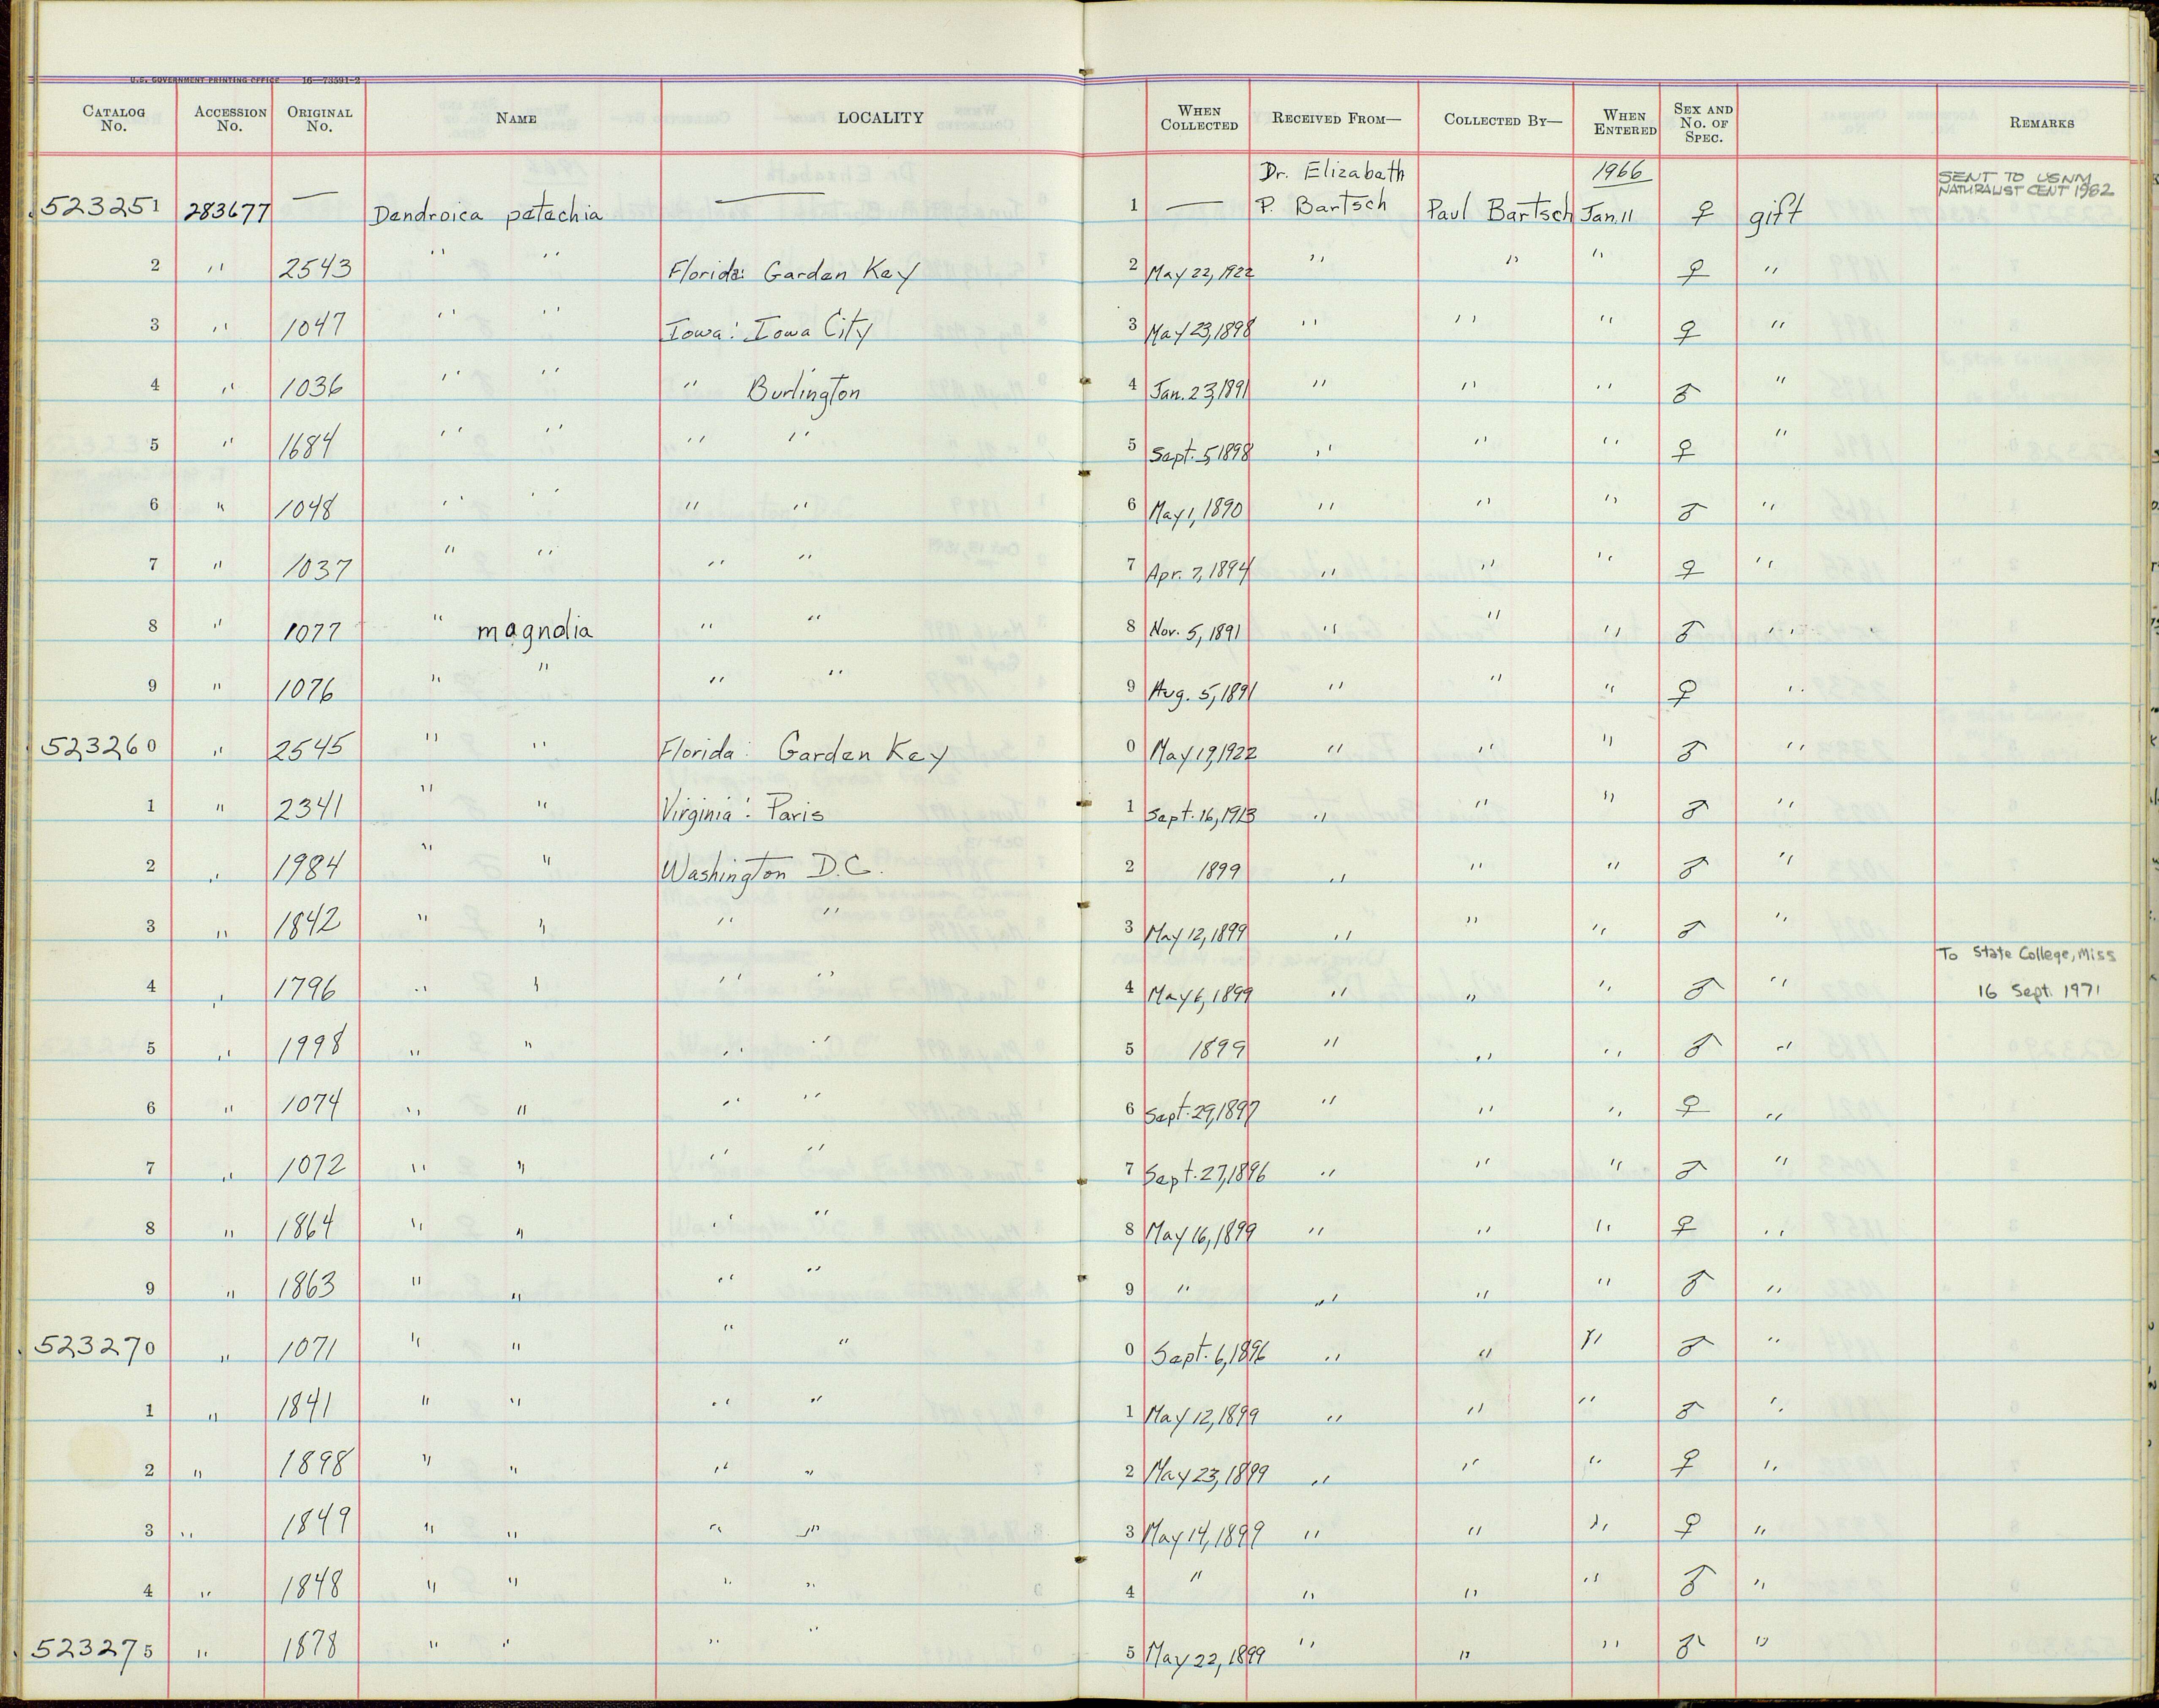 U.S. GOVERNMENT PRINTING OFFICE 16—73591-2
CATALOG No. ACCESSION No. ORIGINAL No. NAME LOCALITY WHEN COLLECTED RECEIVED FROM— COLLECTED BY— WHEN ENTERED SEX AND No. OF SPEC. REMARKS
523251 283677 — Dendroica petechia — 1 — Dr. Elizabeth P. Bartsch Paul Bartsch 1966 Jan. 11 ♀ gift SENT TO USNM NATURALIST CENT 1982
2 " 2543 " " Florida: Garden Key 2 May 22, 1922 " " " ♀ "
3 " 1047 " " Iowa: Iowa City 3 May 23, 1898 " " " ♀ "
4 " 1036 " " " Burlington 4 Jan. 23, 1891 " " " ♂ "
5 " 1684 " " " " 5 Sept. 5, 1898 " " " ♀ "
6 " 1048 " " " " 6 May 1, 1890 " " " ♂ "
7 " 1037 " " " " 7 Apr. 7, 1894 " " " ♀ "
8 " 1077 " magnolia " " 8 Nov. 5, 1891 " " " ♂ "
9 " 1076 " " " " 9 Aug. 5, 1891 " " " ♀ "
523260 " 2545 " " Florida: Garden Key 0 May 19, 1922 " " " ♂ "
1 " 2341 " " Virginia: Paris 1 Sept. 16, 1913 " " " ♂ "
2 " 1984 " " Washington D.C. 2 1899 " " " ♂ "
3 " 1842 " " " " 3 May 12, 1899 " " " ♂ "
4 " 1796 " " " " 4 May 6, 1899 " " " ♂ " To State College, Miss 16 Sept. 1971
5 " 1998 " " " " 5 1899 " " " ♂ "
6 " 1074 " " " " 6 Sept. 29, 1897 " " " ♀ "
7 " 1072 " " " " 7 Sept. 27, 1896 " " " ♂ "
8 " 1864 " " " " 8 May 16, 1899 " " " ♀ "
9 " 1863 " " " " 9 " " " " ♂ "
523270 " 1071 " " " " 0 Sept. 6, 1896 " " " ♂ "
1 " 1841 " " " " 1 May 12, 1899 " " " ♂ "
2 " 1898 " " " " 2 May 23, 1899 " " " ♀ "
3 " 1849 " " " " 3 May 14, 1899 " " " ♀ "
4 " 1848 " " " " 4 " " " " ♂ "
523275 " 1878 " " " " 5 May 22, 1899 " " " ♂ "